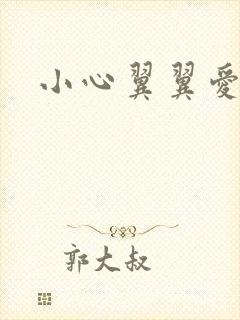 小心翼翼爱
郭大叔